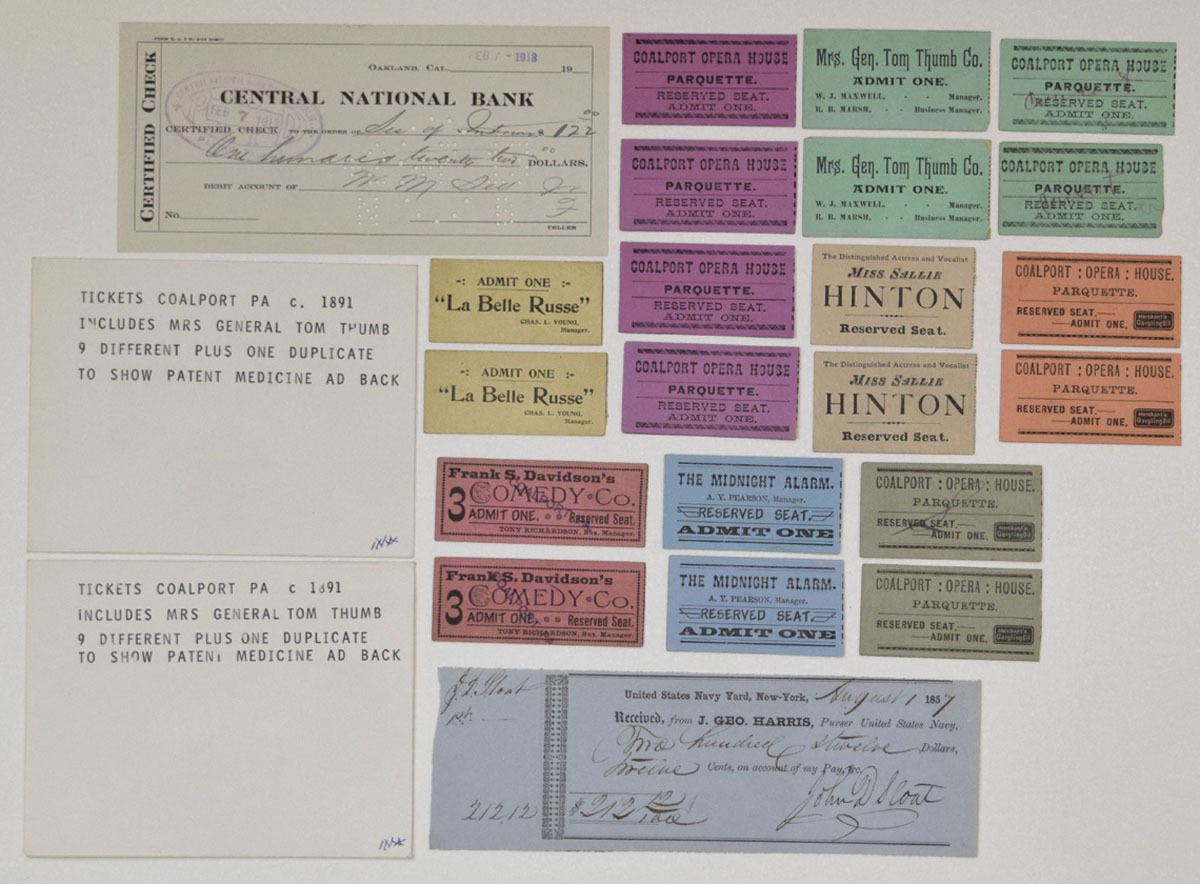 CERTIFIED CHECK
OAKLAND, CAL. FEB 7 - 1913 19
CENTRAL NATIONAL BANK
FEB 7 1913
CERTIFIED CHECK TO THE ORDER OF Sec of $ 122 00
One hundred twenty two 00 DOLLARS.
DEBIT ACCOUNT OF W. M.
No.
TELLER
COALPORT OPERA HOUSE
PARQUETTE.
RESERVED SEAT.
ADMIT ONE.
Mrs. Gen. Tom Thumb Co.
ADMIT ONE.
W. J. MAXWELL, - - Manager.
R. B. MARSH, - - Business Manager.
COALPORT OPERA HOUSE
PARQUETTE.
RESERVED SEAT.
ADMIT ONE.
COALPORT OPERA HOUSE
PARQUETTE.
RESERVED SEAT.
ADMIT ONE.
Mrs. Gen. Tom Thumb Co.
ADMIT ONE.
W. J. MAXWELL, - - Manager.
R. B. MARSH, - - Business Manager.
COALPORT OPERA HOUSE
PARQUETTE.
RESERVED SEAT.
ADMIT ONE.
TICKETS COALPORT PA c. 1891
INCLUDES MRS GENERAL TOM THUMB
9 DIFFERENT PLUS ONE DUPLICATE
TO SHOW PATENT MEDICINE AD BACK
-: ADMIT ONE :-
"La Belle Russe"
CHAS. L. YOUNG,
Manager.
COALPORT OPERA HOUSE
PARQUETTE.
RESERVED SEAT.
ADMIT ONE.
The Distinguished Actress and Vocalist
MISS SALLIE
HINTON
Reserved Seat.
COALPORT : OPERA : HOUSE.
PARQUETTE.
RESERVED SEAT.
ADMIT ONE.
Merchant's
Gargling Oil
-: ADMIT ONE :-
"La Belle Russe"
CHAS. L. YOUNG,
Manager.
COALPORT OPERA HOUSE
PARQUETTE.
RESERVED SEAT.
ADMIT ONE.
The Distinguished Actress and Vocalist
MISS SALLIE
HINTON
Reserved Seat.
COALPORT : OPERA : HOUSE.
PARQUETTE.
RESERVED SEAT.
ADMIT ONE.
Merchant's
Gargling Oil
Frank S. Davidson's
3 COMEDY Co.
ADMIT ONE. Reserved Seat.
TONY RICHARDSON, Bus. Manager.
THE MIDNIGHT ALARM.
A. Y. PEARSON, Manager.
RESERVED SEAT.
ADMIT ONE
COALPORT : OPERA : HOUSE.
PARQUETTE.
RESERVED SEAT.
ADMIT ONE.
Merchant's
Gargling Oil
TICKETS COALPORT PA c 1891
INCLUDES MRS GENERAL TOM THUMB
9 DIFFERENT PLUS ONE DUPLICATE
TO SHOW PATENT MEDICINE AD BACK
Frank S. Davidson's
3 COMEDY Co.
ADMIT ONE. Reserved Seat.
TONY RICHARDSON, Bus. Manager.
THE MIDNIGHT ALARM.
A. Y. PEARSON, Manager.
RESERVED SEAT.
ADMIT ONE
COALPORT : OPERA : HOUSE.
PARQUETTE.
RESERVED SEAT.
ADMIT ONE.
Merchant's
Gargling Oil
J. D. Sloat
212.12
United States Navy Yard, New-York, August 1 1857
Received, from J. GEO. HARRIS, Purser United States Navy,
Two hundred & twelve Dollars,
Twelve Cents, on account of my Pay, &c.
$212 12/100 John D Sloat